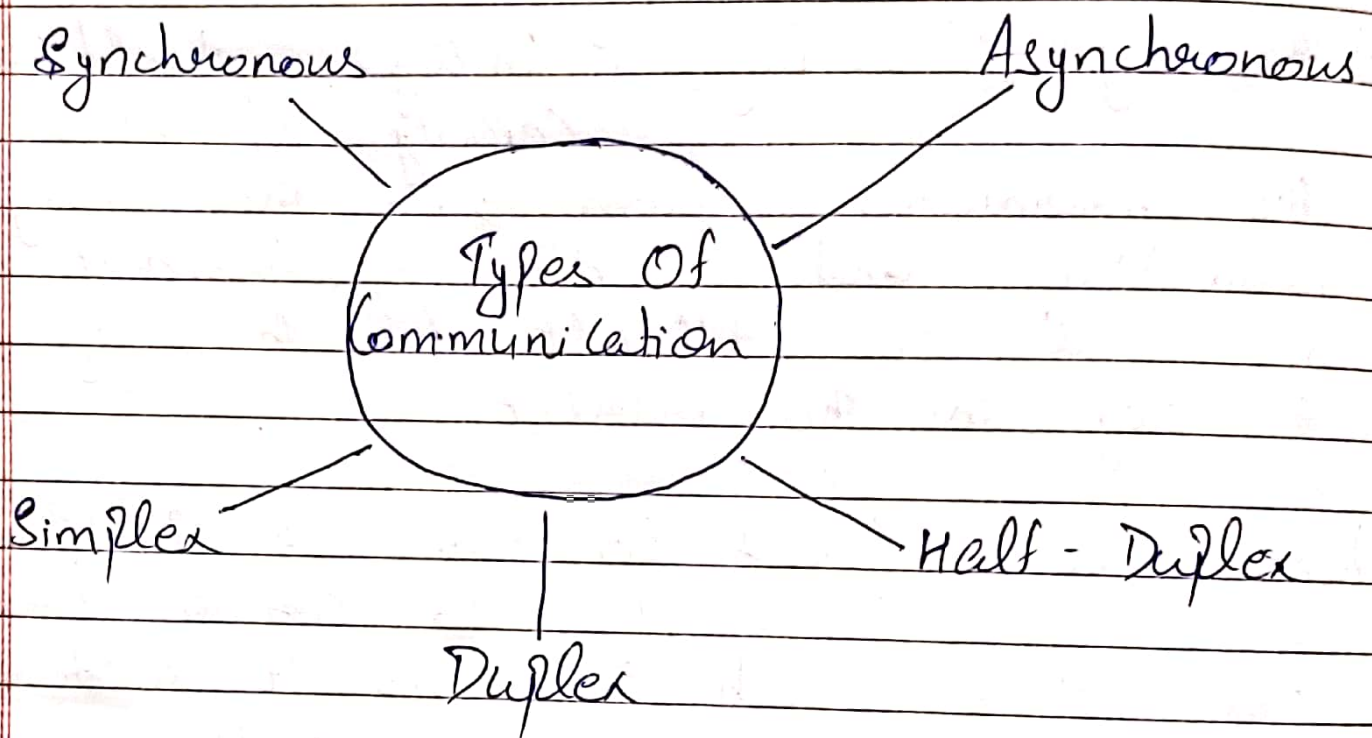 Synchronous
Asynchronous
Types Of
Communication
Simplex
Half - Duplex
Duplex